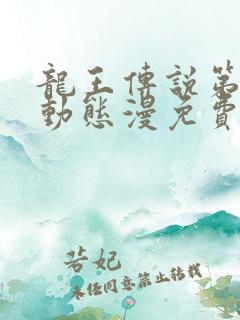 龍王傳說第
動態漫免費
若妃
未经同意禁止转载